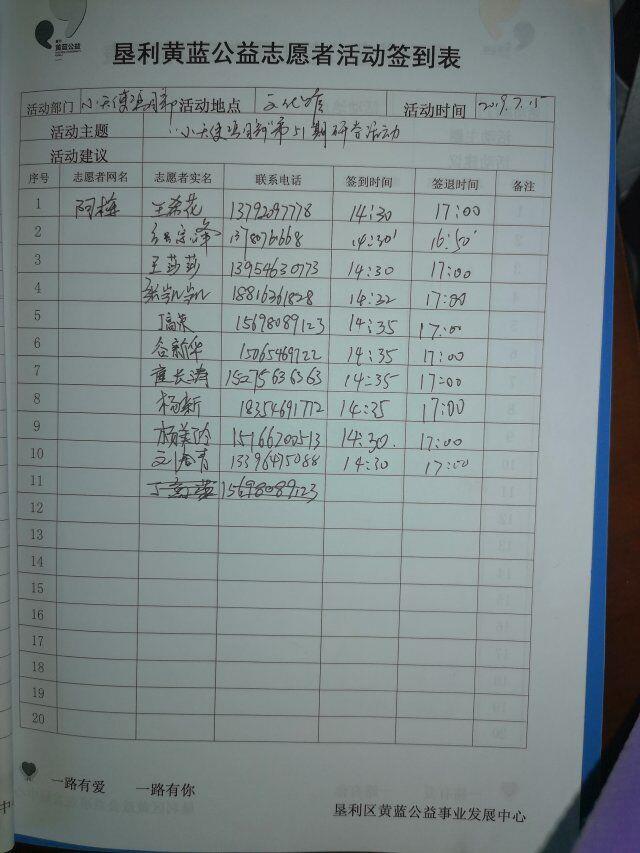 黄蓝公益
垦利黄蓝公益志愿者活动签到表
活动部门 小天使 活动地点 文化 活动时间 2019.7.15
活动主题 "小天使 第51期研学活动
活动建议
序号 志愿者网名 志愿者实名 联系电话 签到时间 签退时间 备注
1 阿栋 王希花 13792097778 14:30 17:00
2 14:30' 16:50'
3 王莎莎 13954630773 14:30 17:00
4 张凯凯 18816261828 14:32 17:00
5 15698089123 14:35 17:00
6 谷新华 15065469722 14:35 17:00
7 长涛 15275636363 14:35 17:00
8 杨新 18354691772 14:35 17:00
9 14:30. 17:00
10 13396475088 14:30 17:00
11 15698089123
12
13
14
15
16
17
18
19
20
一路有爱 一路有你
垦利区黄蓝公益事业发展中心